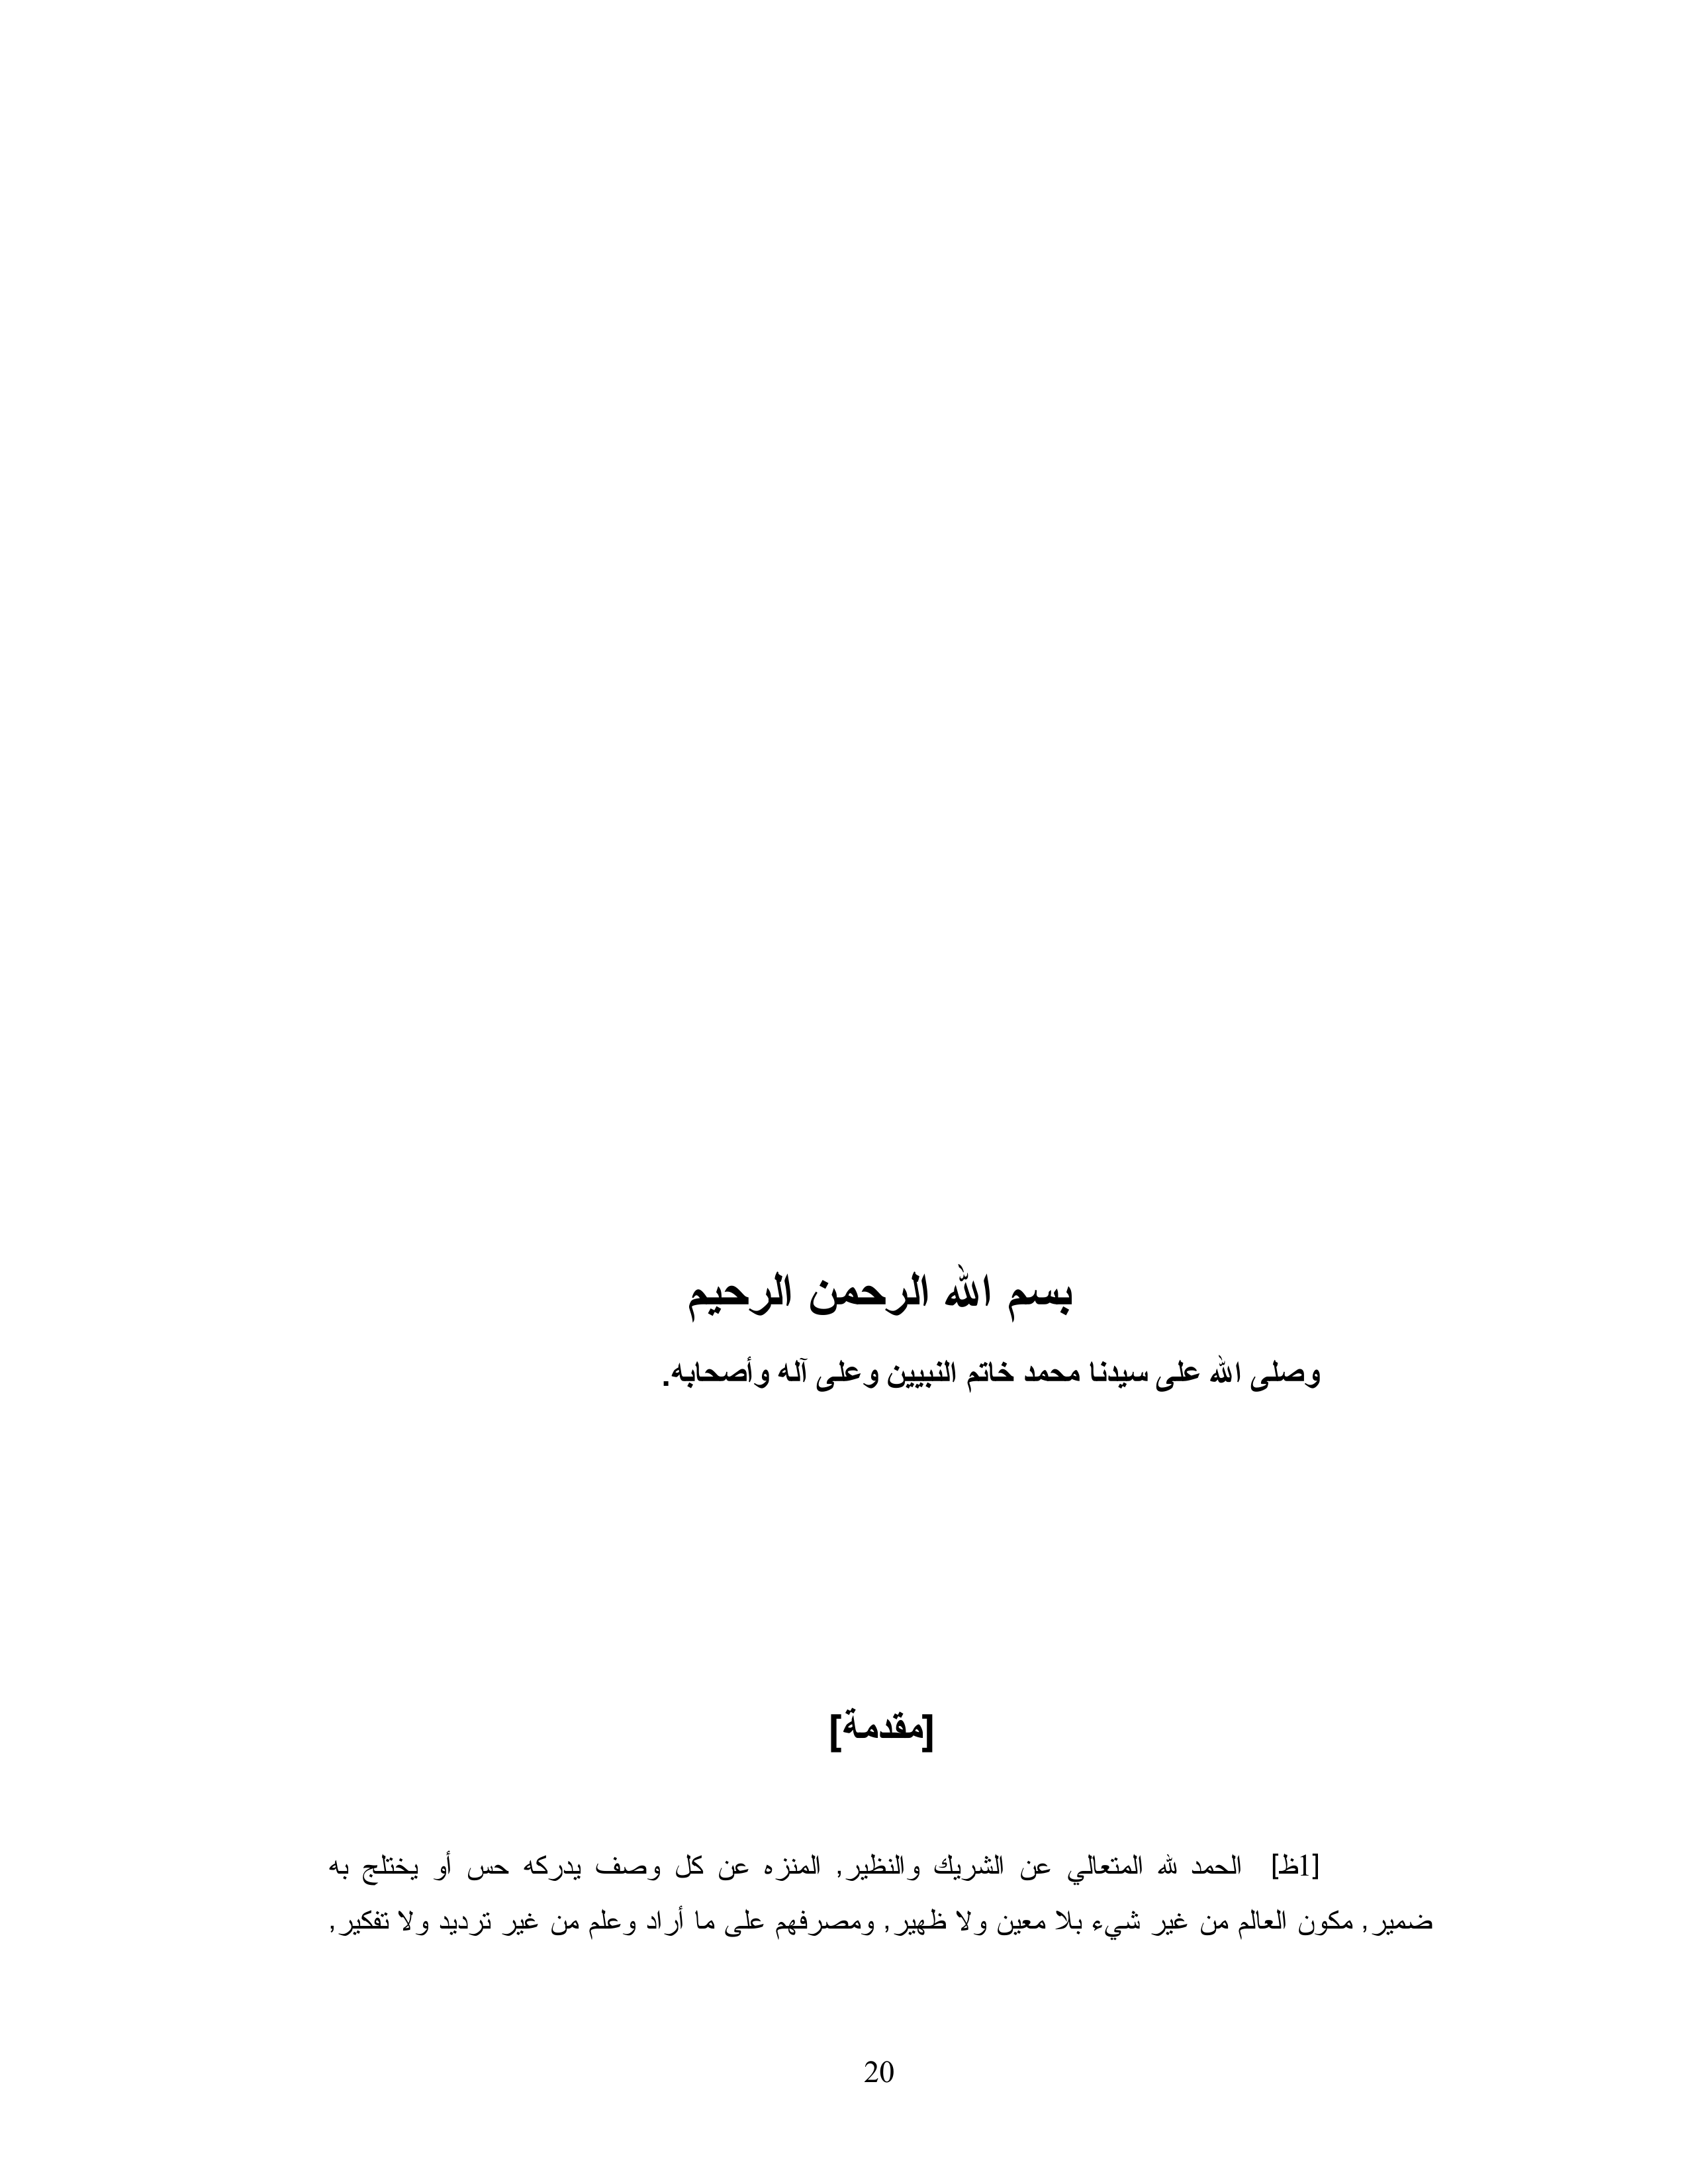 بسم الله الرحمن الرحيم
وصلى الله على سيدنا محمد خاتم النبيين وعلى آله وأصحابه.
[مقدمة]
[1ظ] الحمد لله المتعالي عن الشريك والنظير, المنزه عن كل وصف يدركه حس أو يختلج به
ضمير, مكون العالم من غير شيء بلا معين ولا ظهير, ومصرفهم على ما أراد وعلم من غير ترديد ولا تفكير,
20